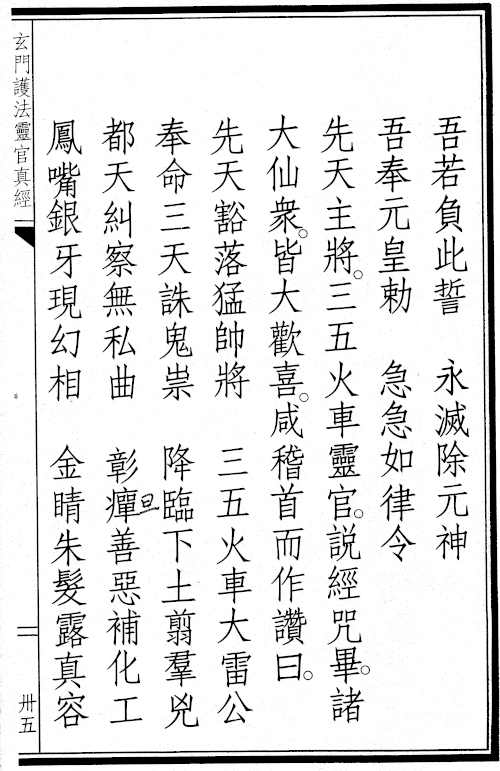 吾若負此誓　永滅除元神
吾奉元皇勅　急急如律令
先天主將。三五火車靈官。說經咒畢。諸
大仙衆。皆大歡喜。咸稽首而作讚曰。
先天豁落猛帥將　三五火車大雷公
奉命三天誅鬼祟　降臨下土翦羣兇
都天糾察無私曲　彰癉善惡補化工
旦
鳳嘴銀牙現幻相　金睛朱髮露真容
玄門護法靈官真經
二
卅五